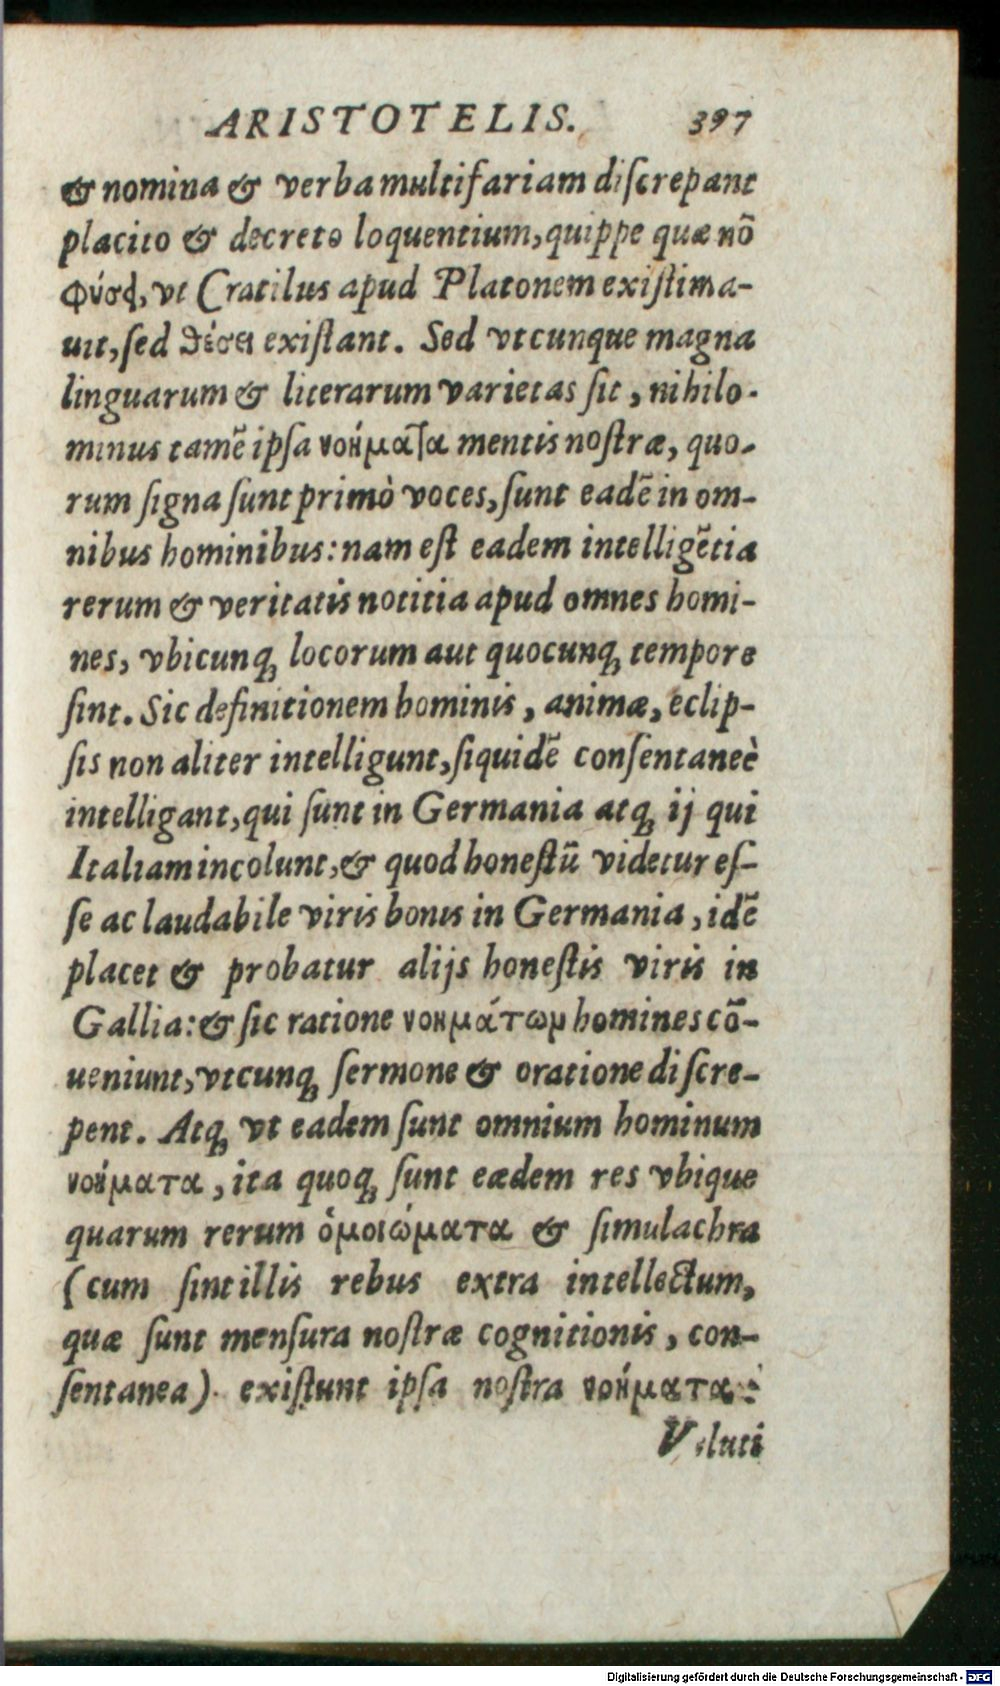 ARISTOTELIS. 397
& nomina & verba multifariam diſcrepant
placito & decreto loquentium, quippe quæ nō
φύσει, vt Cratilus apud Platonem exiſtima-
uit, ſed θέσει exiſtant. Sed vtcunque magna
linguarum & literarum varietas ſit, nihilo-
minus tamē ipſa νοήματα mentis noſtræ, quo-
rum ſigna ſunt primò voces, ſunt eadē in om-
nibus hominibus: nam eſt eadem intelligētia
rerum & veritatis notitia apud omnes homi-
nes, vbicunq; locorum aut quocunq; tempore
ſint. Sic definitionem hominis, animæ, eclip-
ſis non aliter intelligunt, ſiquidē conſentaneè
intelligant, qui ſunt in Germania atq; ij qui
Italiam incolunt, & quod honeſtū videtur eſ-
ſe ac laudabile viris bonis in Germania, idē
placet & probatur alijs honeſtis viris in
Gallia: & ſic ratione νοημάτων homines cō-
ueniunt, vtcunq; ſermone & oratione diſcre-
pent. Atq; vt eadem ſunt omnium hominum
νοήματα, ita quoq; ſunt eædem res vbique
quarum rerum ὁμοιώματα & ſimulachra
(cum ſint illis rebus extra intellectum,
quæ ſunt menſura noſtræ cognitionis, con-
ſentanea). exiſtunt ipſa noſtra νοήματα:
Veluti
Digitalisierung gefördert durch die Deutsche Forschungsgemeinschaft - DFG